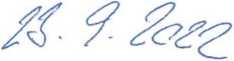 23. 9. 2022